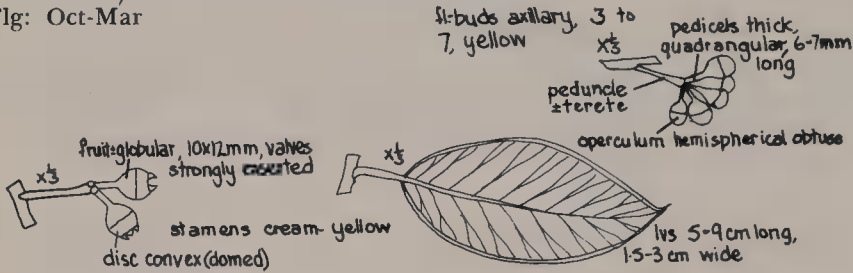 Flg: Oct-Mar
fl-buds axillary, 3 to
7, yellow
x⅓
pedicels thick,
quadrangular, 6-7mm
long
peduncle
±terete
operculum hemispherical obtuse
fruit±globular, 10x12mm, valves
strongly
x⅓
stamens cream-yellow
disc convex (domed)
x⅓
lvs 5-9 cm long,
1·5-3 cm wide